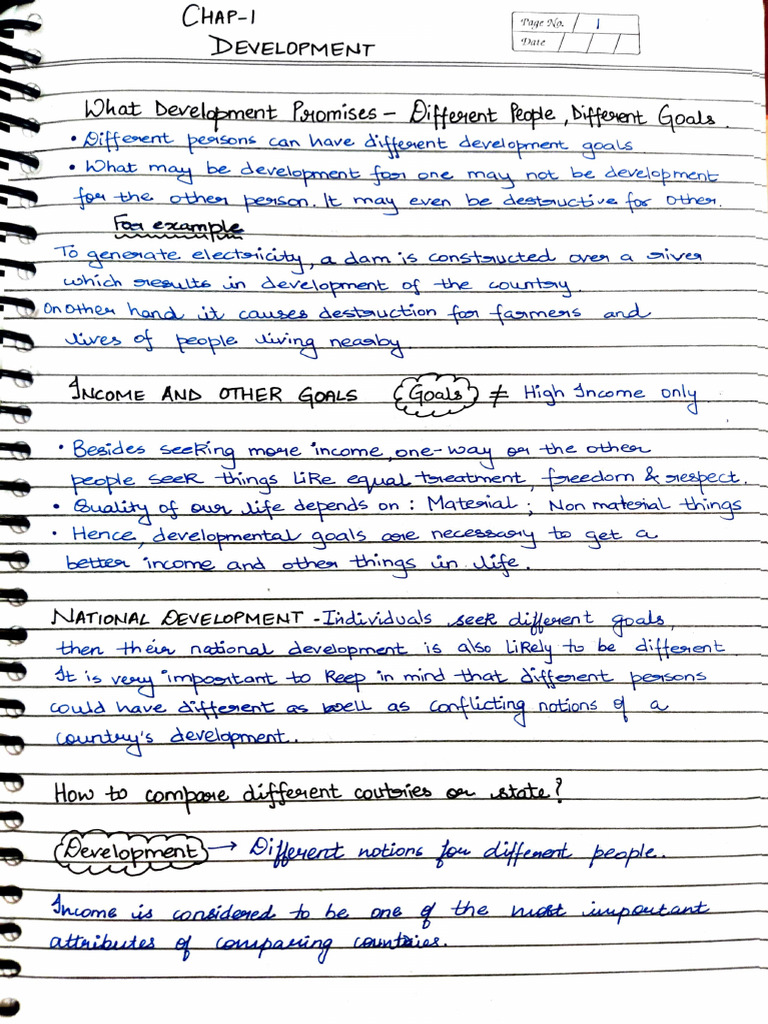 CHAP-1
DEVELOPMENT
Page No. / 1
Date / / /
What Development Promises - Different People, Different Goals.
• Different persons can have different development goals
• What may be development for one may not be development
for the other person. It may even be destructive for other.
For example
To generate electricity, a dam is constructed over a river
which results in development of the country.
On other hand it causes destruction for farmers and
lives of people living nearby.
INCOME AND OTHER GOALS Goals ≠ High Income only
• Besides seeking more income, one-way or the other
people seek things like equal treatment, freedom & respect.
• Quality of our life depends on : Material ; Non material things
• Hence, developmental goals are necessary to get a
better income and other things in life.
NATIONAL DEVELOPMENT - Individuals seek different goals,
then their national development is also likely to be different
It is very important to keep in mind that different persons
could have different as well as conflicting notions of a
country's development.
How to compare different coutries or state?
Development → Different notions for different people.
Income is considered to be one of the most important
attributes of comparing countries.